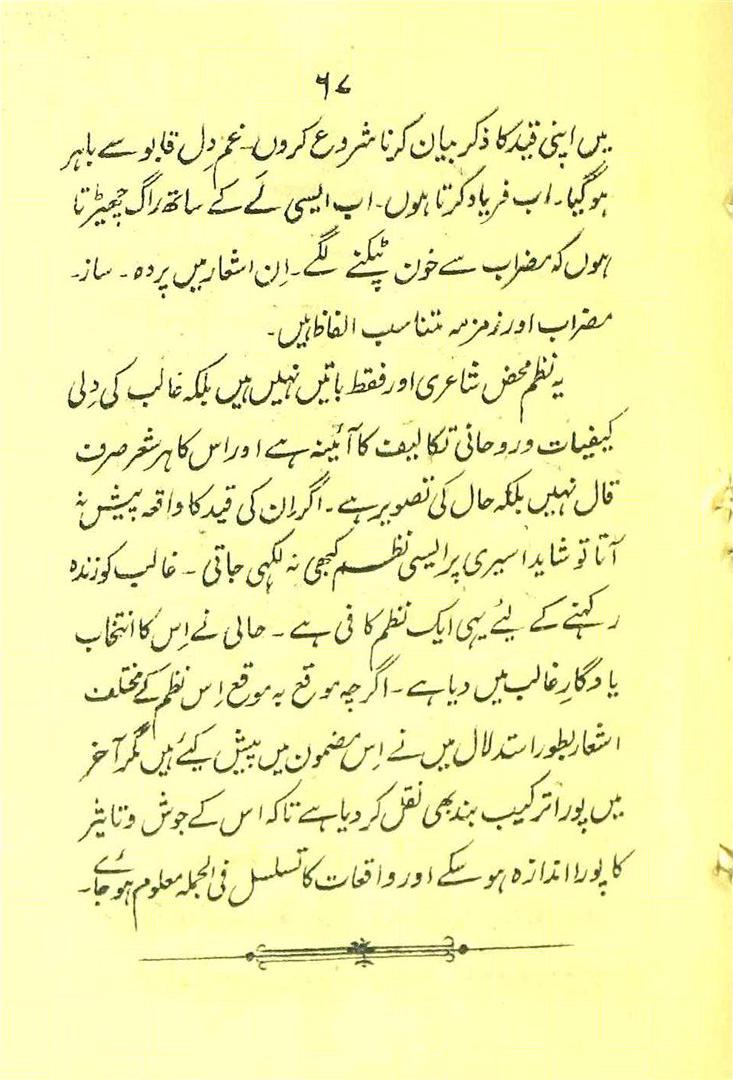 ۶۷
میں اپنی قید کا ذکر بیان کرنا شروع کروں۔ غم دِل قابو سے باہر
ہو گیا۔ اب فریاد کرتا ہوں۔ اب ایسی لَے کے ساتھ راگ چھیڑتا
ہوں کہ مضراب سے خون ٹپکنے لگے۔ اِن اشعار میں پردہ۔ ساز۔
مضراب اور زمزمہ متناسب الفاظ ہیں۔
یہ نظم محض شاعری اور فقط باتیں نہیں ہیں بلکہ غالب کی دِلی
کیفیات و روحانی تکالیف کا آئینہ ہے اور اس کا ہر شعر صرف
قال نہیں بلکہ حال کی تصویر ہے۔ اگر اِن کی قید کا واقعہ پیش نہ
آتا تو شاید اسیری پر ایسی نظم کبھی نہ لکھی جاتی۔ غالب کو زندہ
رکہنے کے لیٔے یہی ایک نظم کافی ہے۔ حالی نے اِس کا انتخاب
یادگارِ غالب میں دیا ہے۔ اگرچہ موقع بہ موقع اِس نظم کے مختلف
اشعار بطور استدلال میں نے اِس مضمون میں پیش کیٔے ہیں مگر آخر
میں پورا ترکیب بند بھی نقل کر دیا ہے تاکہ اس کے جوش و تاثیر
کا پورا اندازہ ہو سکے اور واقعات کا تسلسل فی الجملہ معلوم ہو جائے۔